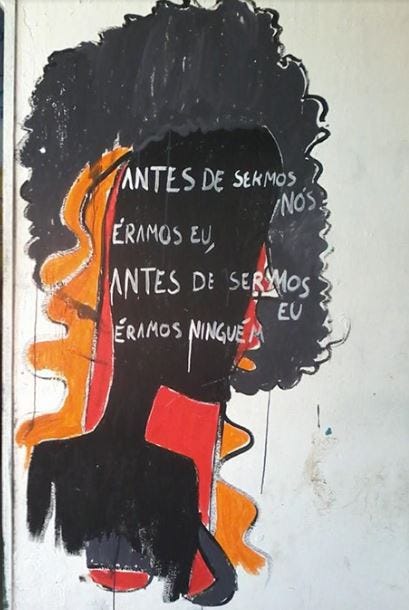 ANTES DE SERMOS
NÓS
ÉRAMOS EU,
ANTES DE SERMOS
EU
ÉRAMOS NINGUÉM